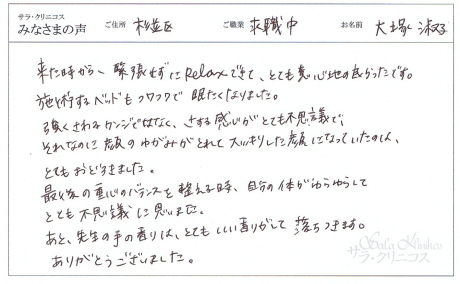 サラ・クリニコス
みなさまの声 ご住所 杉並区 ご職業 求職中 お名前 大塚 淑子
来た時から、緊張せずにRelaxできて、とても居心地の良かったです。
施術するベッドもフワフワで眠たくなりました。
強くされるカンジではなく、さする感じがとても不思議で、
それなのに顔のゆがみがとれてスッキリした顔になっていたのは、
とてもおどろきました。
最後の重心のバランスを整える時、自分の体がゆらゆらして
とても不思議に思いました。
あと、先生の手の香りは、とてもいい香りがして落ちつきます。
ありがとうございました。
Sala Klinikos
サラ・クリニコス